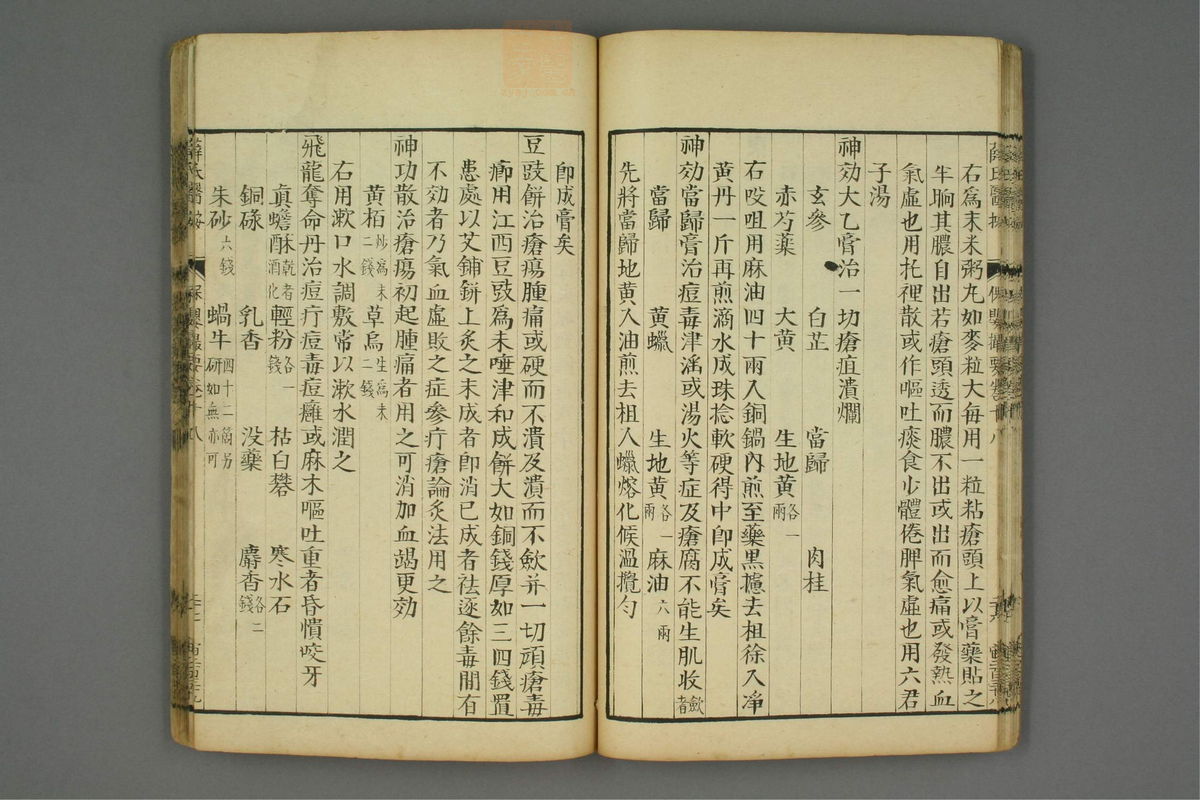 右為末米粥丸如麥粒大每用一粒粘瘡頭上以膏藥貼之
半晌其膿自出若瘡頭透而膿不出或出而愈痛或發熱血
氣虛也用托裡散或作嘔吐痰食少體倦脾氣虛也用六君
子湯
神効大乙膏治一切瘡疽潰爛
玄參 白芷 當歸 肉桂
赤芍藥 大黃 生地黃各一兩
右㕮咀用麻油四十兩入銅鍋內煎至藥黑攄去柤徐入凈
黃丹一斤再煎滴水成珠捻軟硬得中卽成膏矣
神効當歸膏治痘毒津滛或湯火等症及瘡腐不能生肌收斂者
當歸 黃蠟 生地黃各一兩 麻油六兩
先將當歸地黃入油煎去柤入蠟熔化候溫攪勻
卽成膏矣
豆豉餅治瘡瘍腫痛或硬而不潰及潰而不斂并一切頑瘡毒
癤用江西豆豉為末唾津和成餅大如銅錢厚如三四錢置
患處以艾鋪餅上灸之未成者卽消已成者祛逐餘毒間有
不効者乃氣血虛敗之症參疔瘡論灸法用之
神功散治瘡瘍初起腫痛者用之可消加血竭更効
黃柏炒為末二錢 草烏生為末二錢
右用漱口水調敷常以漱水潤之
飛龍奪命丹治痘疔痘毒痘癰或麻木嘔吐重者昏憒咬牙
真蟾酥乾者酒化 輕粉各一錢 枯白礬 寒水石
銅碌 乳香 没藥 麝香各二錢
朱砂六錢 蝸牛四十二箇另研如無亦可